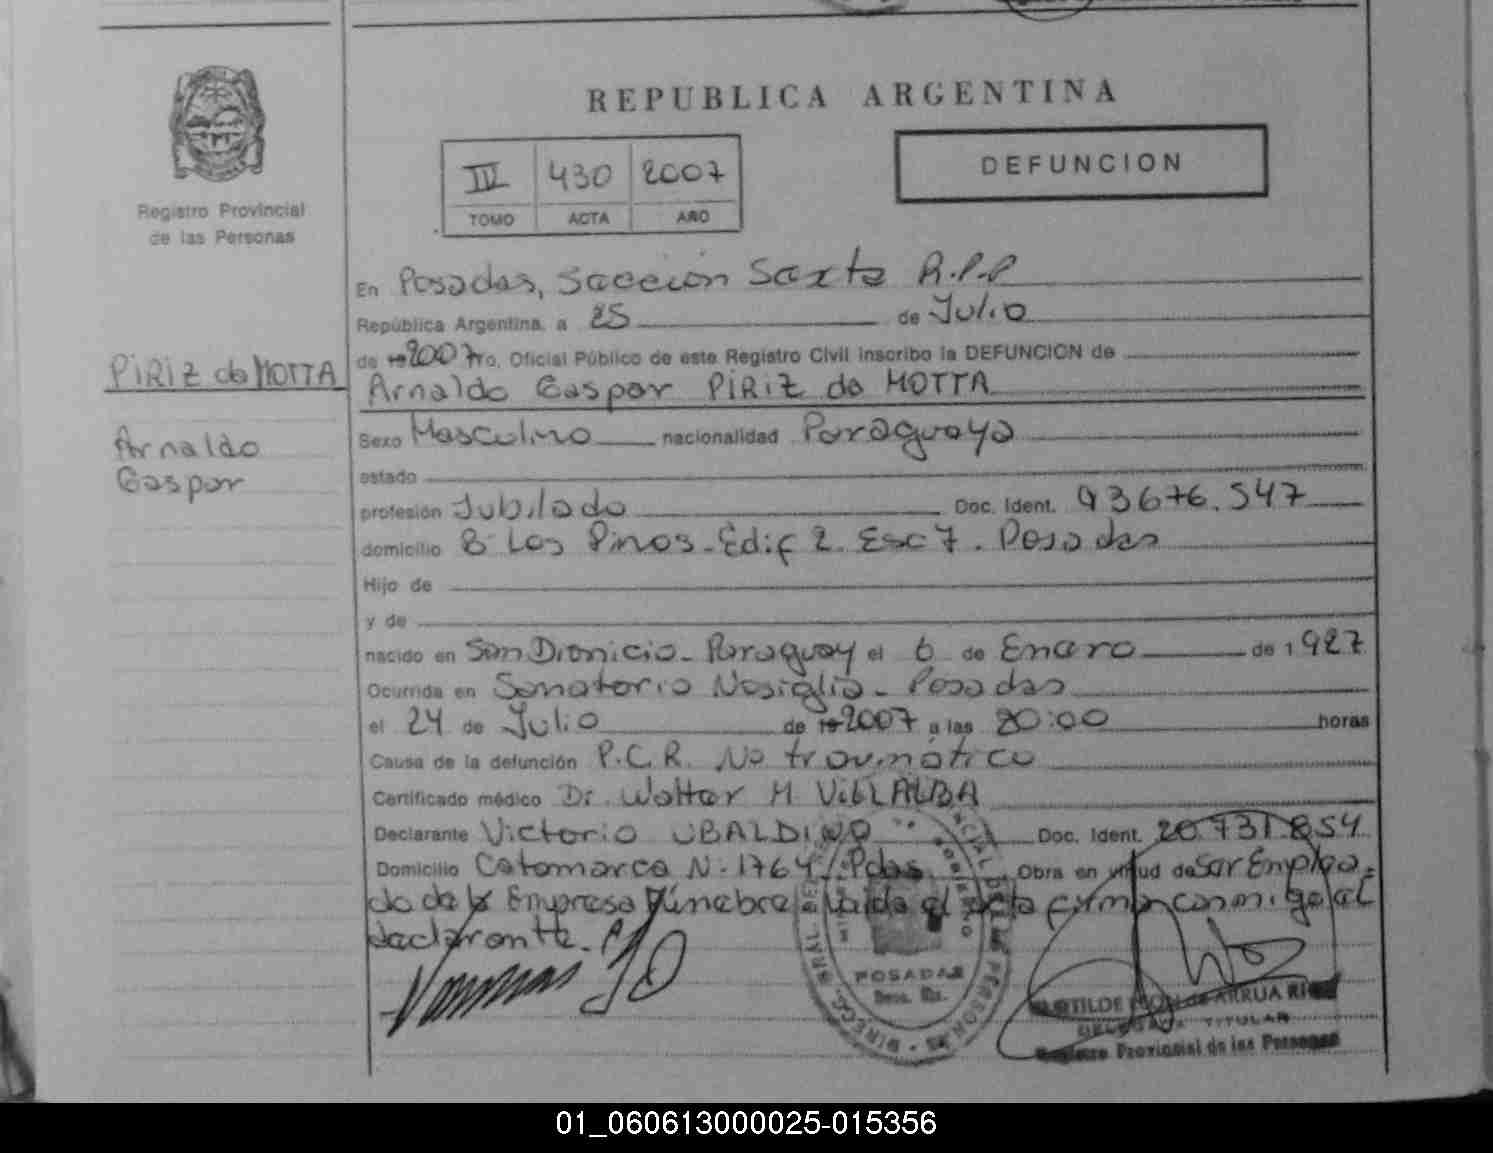 REPUBLICA ARGENTINA
DEFUNCION
III 430 2007
TOMO ACTA AÑO
Registro Provincial
de las Personas
En Posadas, Sección Sexta R.P.P
República Argentina, a 25 de Julio
de 19 2007 Yo, Oficial Público de este Registro Civil inscribo la DEFUNCION de
PIRIZ da MOTTA
Arnaldo Gaspar PIRIZ da MOTTA
Arnaldo
Gaspar
Sexo Masculino nacionalidad Paraguaya
estado
profesión Jubilado Doc. Ident. 93676.547
domicilio B. Los Pinos - Edif 2. Esc 7. Posadas
Hijo de
y de
nacido en San Dionicio - Paraguay el 6 de Enero de 1 927
Ocurrida en Sanatorio Nosiglia - Posadas
el 24 de Julio de 19 2007 a las 20:00 horas
Causa de la defunción P.C.R. No traumático
Certificado médico Dr. Walter M VILLALBA
Declarante Victorio UBALDINO Doc. Ident. 20.731.854
Domicilio Catamarca N. 1764. Pdas Obra en virtud de Ser Emplea-
do de la Empresa Fúnebre Leida el acta firma conmigo el
declarante.
POSADAS
CLOTILDE de ARRUA
DELEGADA TITULAR
Registro Provincial de las Personas
01_060613000025-015356